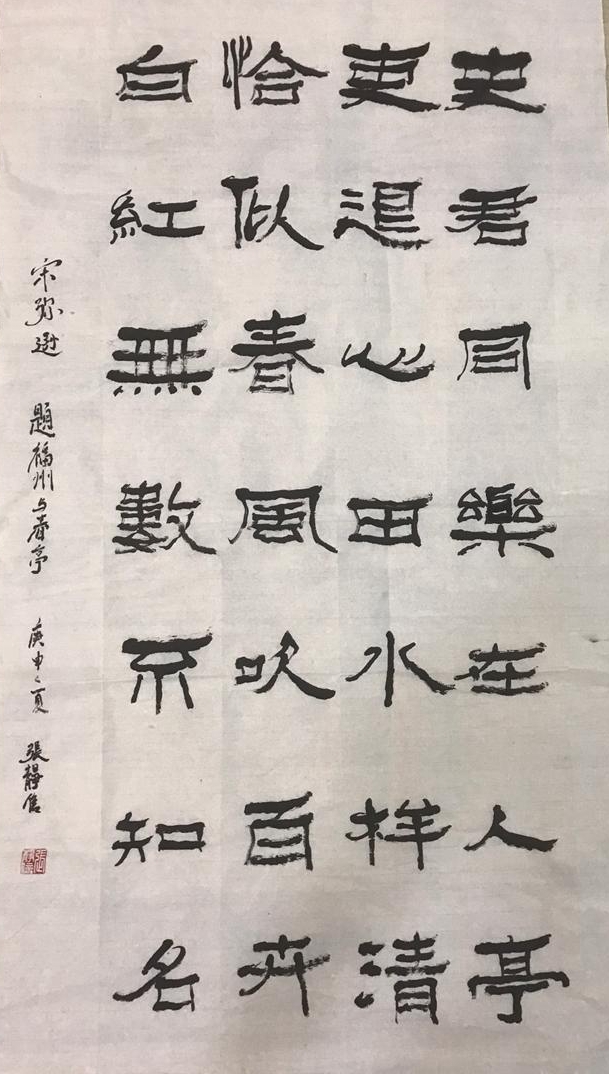 史君同樂在人亭
吏退心田水样清
恰似春風吹百卉
白紅無數不知名
宋弥遜 題福州与春亭 庚申之夏 張靜